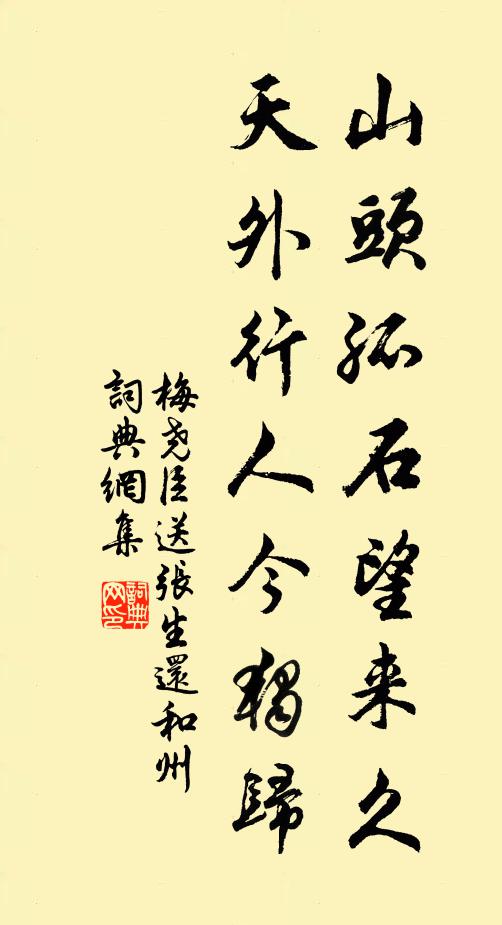 山頭孤石望来久
天外行人今獨歸
梅尧臣送張生還和州
詞典網集
詞典
网印